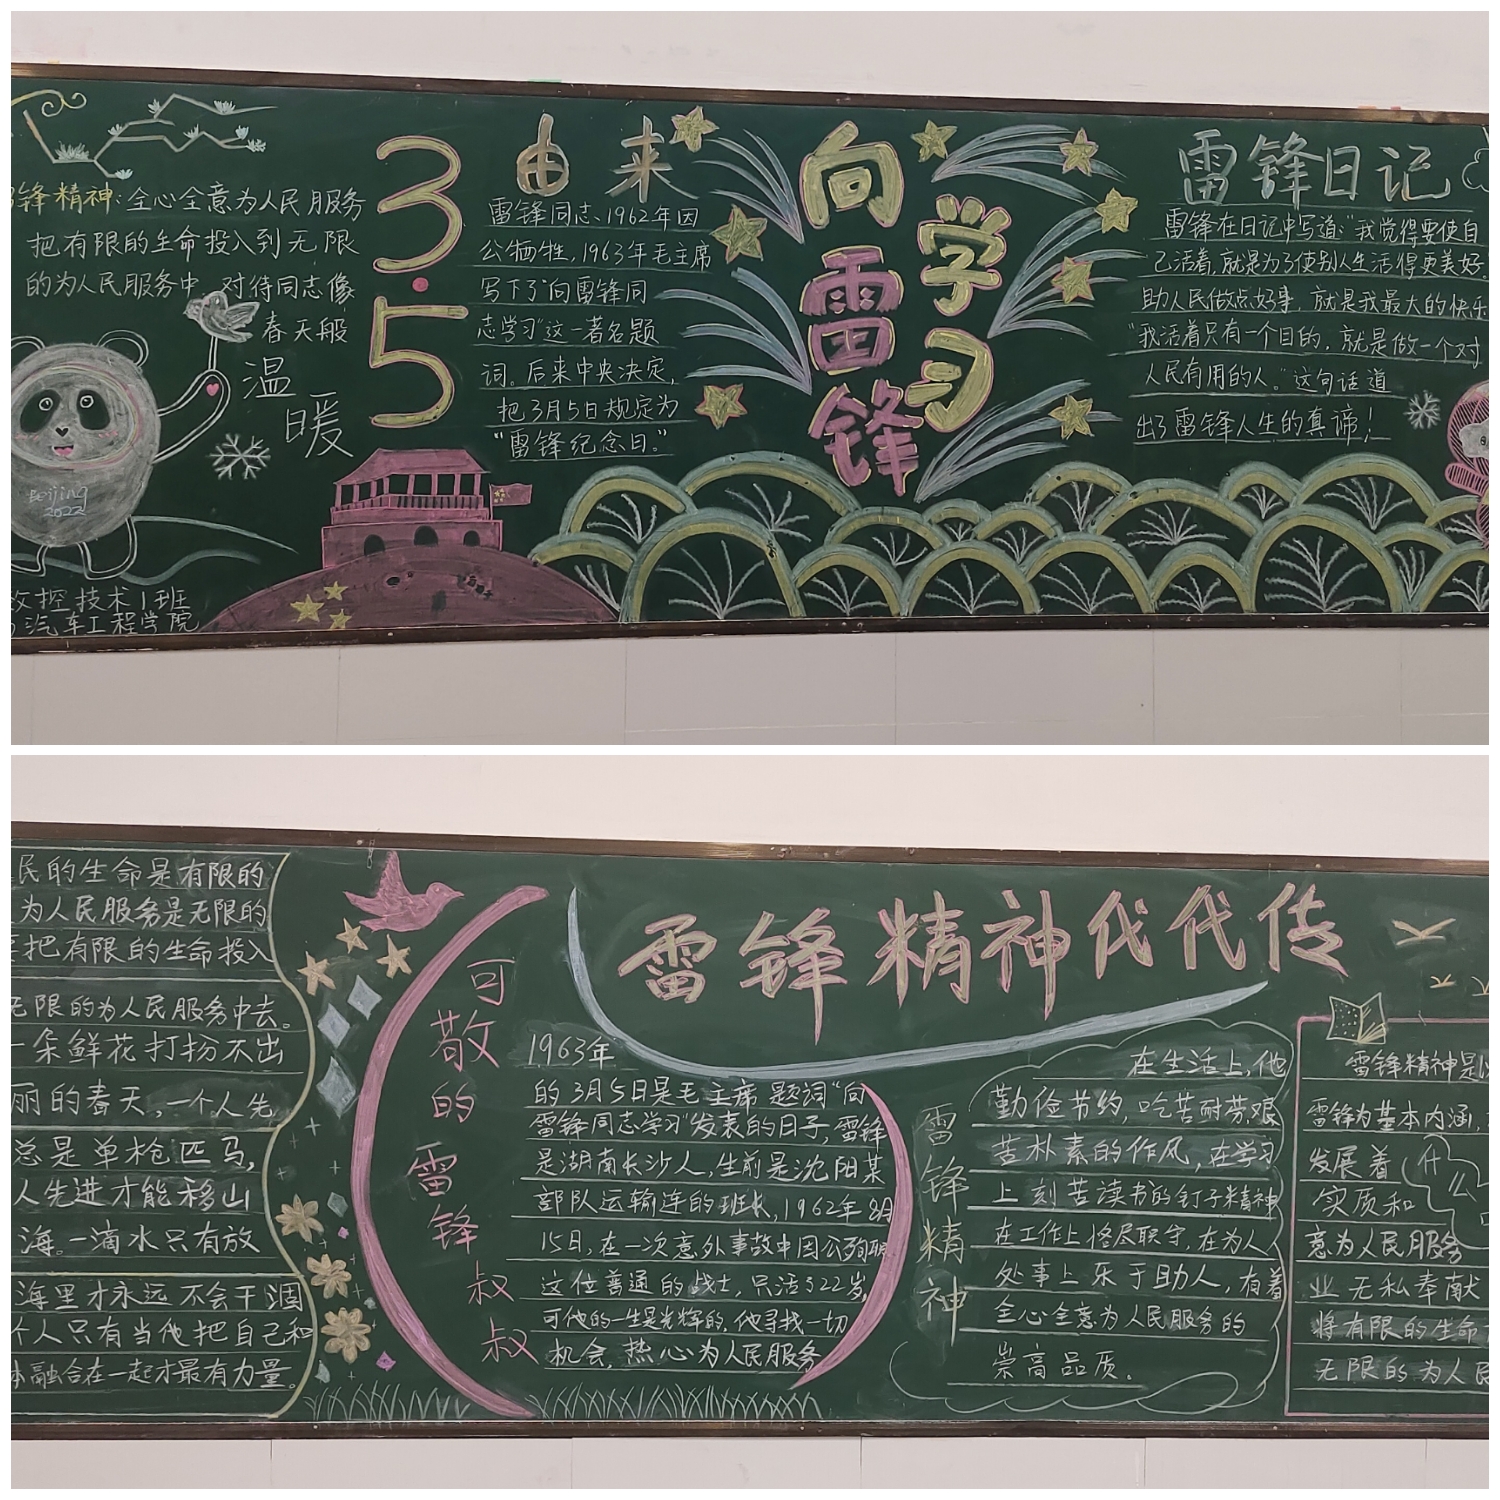 锋精神:全心全意为人民服务
把有限的生命投入到无限
的为人民服务中,对待同志像
春天般
温
暖
Beijing
2022
控技术1班
汽车工程学院
3.5
由来
雷锋同志、1962年因
公牺牲,1963年毛主席
写下了"向雷锋同
志学习"这一著名题
词。后来中央决定,
把3月5日规定为
"雷锋纪念日。"
向
雷
锋
学
习
雷锋日记
雷锋在日记中写道:"我觉得要使自
己活着,就是为了使别人生活得更美好。
助人民做点好事,就是我最大的快乐
"我活着只有一个目的,就是做一个对
人民有用的人。"这句话道
出了雷锋人生的真谛!
民的生命是有限的
为人民服务是无限的
把有限的生命投入
无限的为人民服务中去。
一朵鲜花打扮不出
丽的春天,一个人先
总是单枪匹马,
人先进才能移山
海。一滴水只有放
海里才永远不会干涸
个人只有当他把自己和
融合在一起才最有力量。
可
敬
的
雷
锋
叔
叔
雷锋精神代代传
1963年
的3月5日是毛主席题词"向
雷锋同志学习"发表的日子,雷锋
是湖南长沙人,生前是沈阳某
部队运输连的班长,1962年8月
15日,在一次意外事故中因公殉职
这位普通的战士,只活了22岁,
可他的一生是光辉的,他寻找一切
机会,热心为人民服务
雷
锋
精
神
在生活上,他
勤俭节约,吃苦耐劳,艰
苦朴素的作风,在学习
上刻苦读书的钉子精神
在工作上恪尽职守,在为人
处事上乐于助人,有着
全心全意为人民服务的
崇高品质。
雷锋精神是以
雷锋为基本内涵,
发展着
实质和
意为人民服务
业无私奉献
将有限的生命
无限的为人民